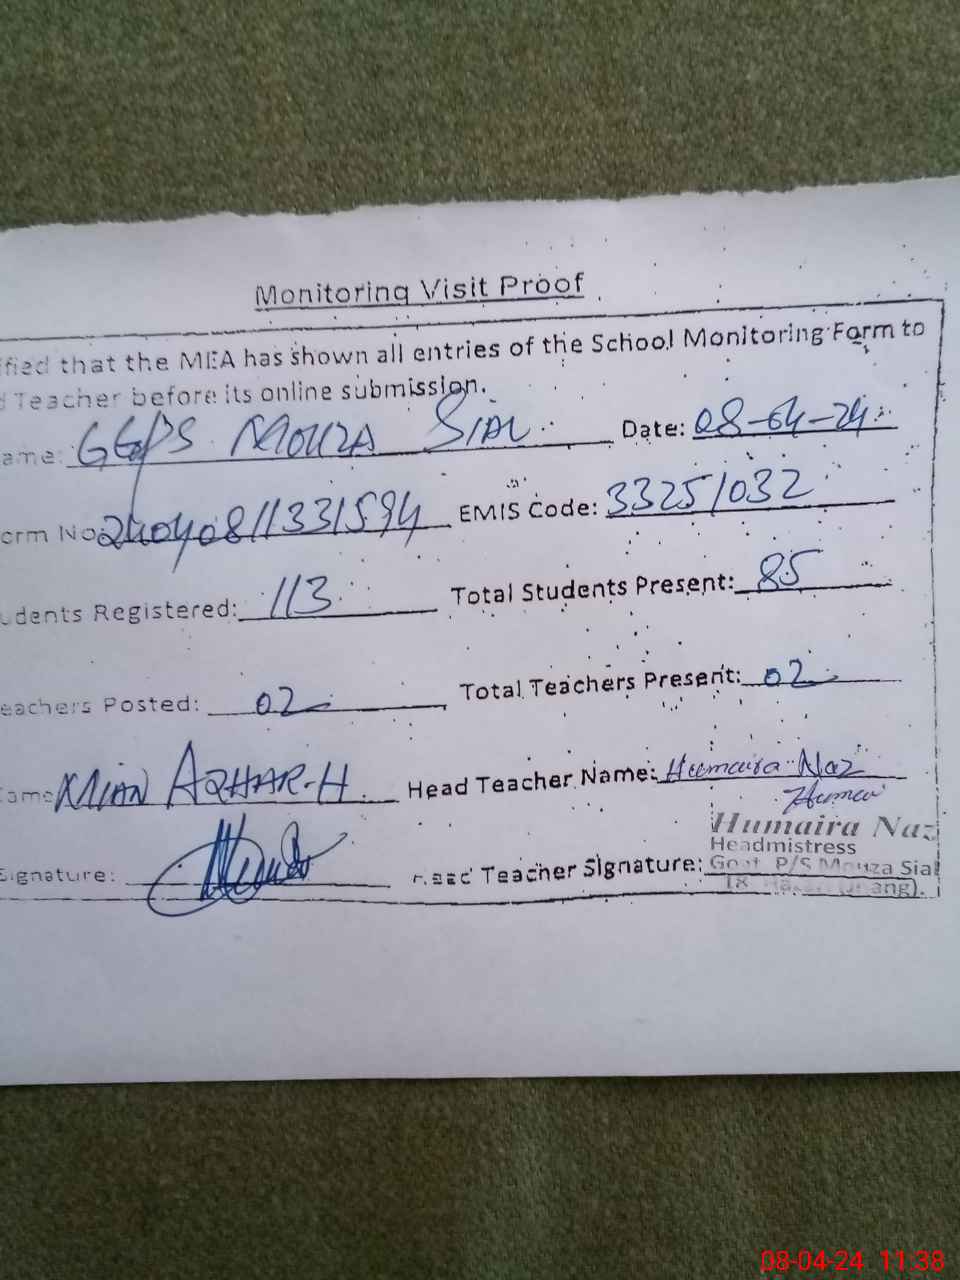 Monitoring Visit Proof
ified that the MEA has shown all entries of the School Monitoring Form to
d Teacher before its online submission.
ame: GGPS MOUZA SIAL Date: 08-04-24
orm No 24040811331594 EMIS Code: 33251032
udents Registered: 113 Total Students Present: 85
eachers Posted: 02 Total Teachers Present: 02
ame MIAN AZHAR-H Head Teacher Name: Humaira Naz
Humaira Naz
Headmistress
Signature: Head Teacher Signature: Govt P/S Mouza Sial
18
08-04-24 11:38